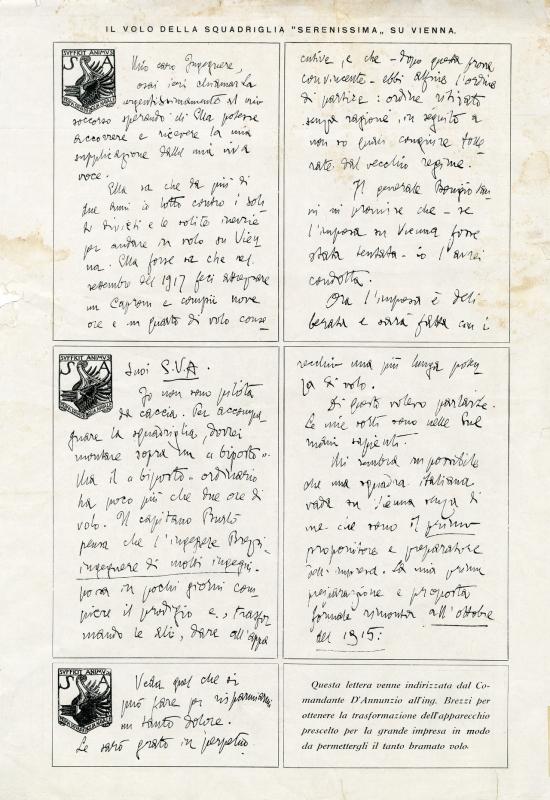 IL VOLO DELLA SQUADRIGLIA "SERENISSIMA„ SU VIENNA.
SVFFICIT ANIMVS
S A
Mio caro Ingegnere,
osai ieri chiamarla
urgentissimamente al mio
soccorso sperando di Ella potesse
accorrere e ricevere la mia
supplicazione dalla mia viva
voce.
Ella sa che da più di
due anni io lotto contro i soli
ti divieti e le solite inerzie
per andare in volo su Vien
na. Ella forse sa che nel
settembre del 1917 feci attrezzare
un Caproni e compii nove
ore e un quarto di volo conse
cutive, e che - dopo questa prova
convincente - ebbi alfine l'ordine
di partire: ordine ritirato
senza ragione, in seguito a
non so quali congiure tolle
rate dal vecchio regime.
Il generale Bongiovan
ni mi promise che - se
l'impresa su Vienna fosse
stata tentata - io l'avrei
condotta.
Ora l'impresa è deli
berata e sarà fatta con i
SVFFICIT ANIMVS
S A
Suoi S.V.A.
Io non sono pilota
da caccia. Per accompa
gnare la squadriglia, dovrei
montare sopra un « biposto ».
Ma il « biposto » ordinario
ha poco più che due ore di
volo. Il capitano
pensa che l'ingegnere Brezzi,
ingegnere di molti ingegni,
possa in pochi giorni com
piere il prodigio e, trasfor
mando le ali, dare all'appa
recchio una più lunga poten
za di volo.
Di questo volevo parlarle.
Le mie sorti sono nelle Sue
mani sapienti.
Mi sembra impossibile
che una squadra italiana
vada su Vienna senza di
me che sono il primo
propositore e preparatore
dell'impresa. La mia prima
preparazione e proposta
formale rimonta all'ottobre
del 1915!
SVFFICIT ANIMVS
S A
Veda quel che si
può fare per risparmiarmi
un tanto dolore.
Le sarò grato in perpetuo.
Questa lettera venne indirizzata dal Co-
mandante D'Annunzio all'ing. Brezzi per
ottenere la trasformazione dell'apparecchio
prescelto per la grande impresa in modo
da permettergli il tanto bramato volo.